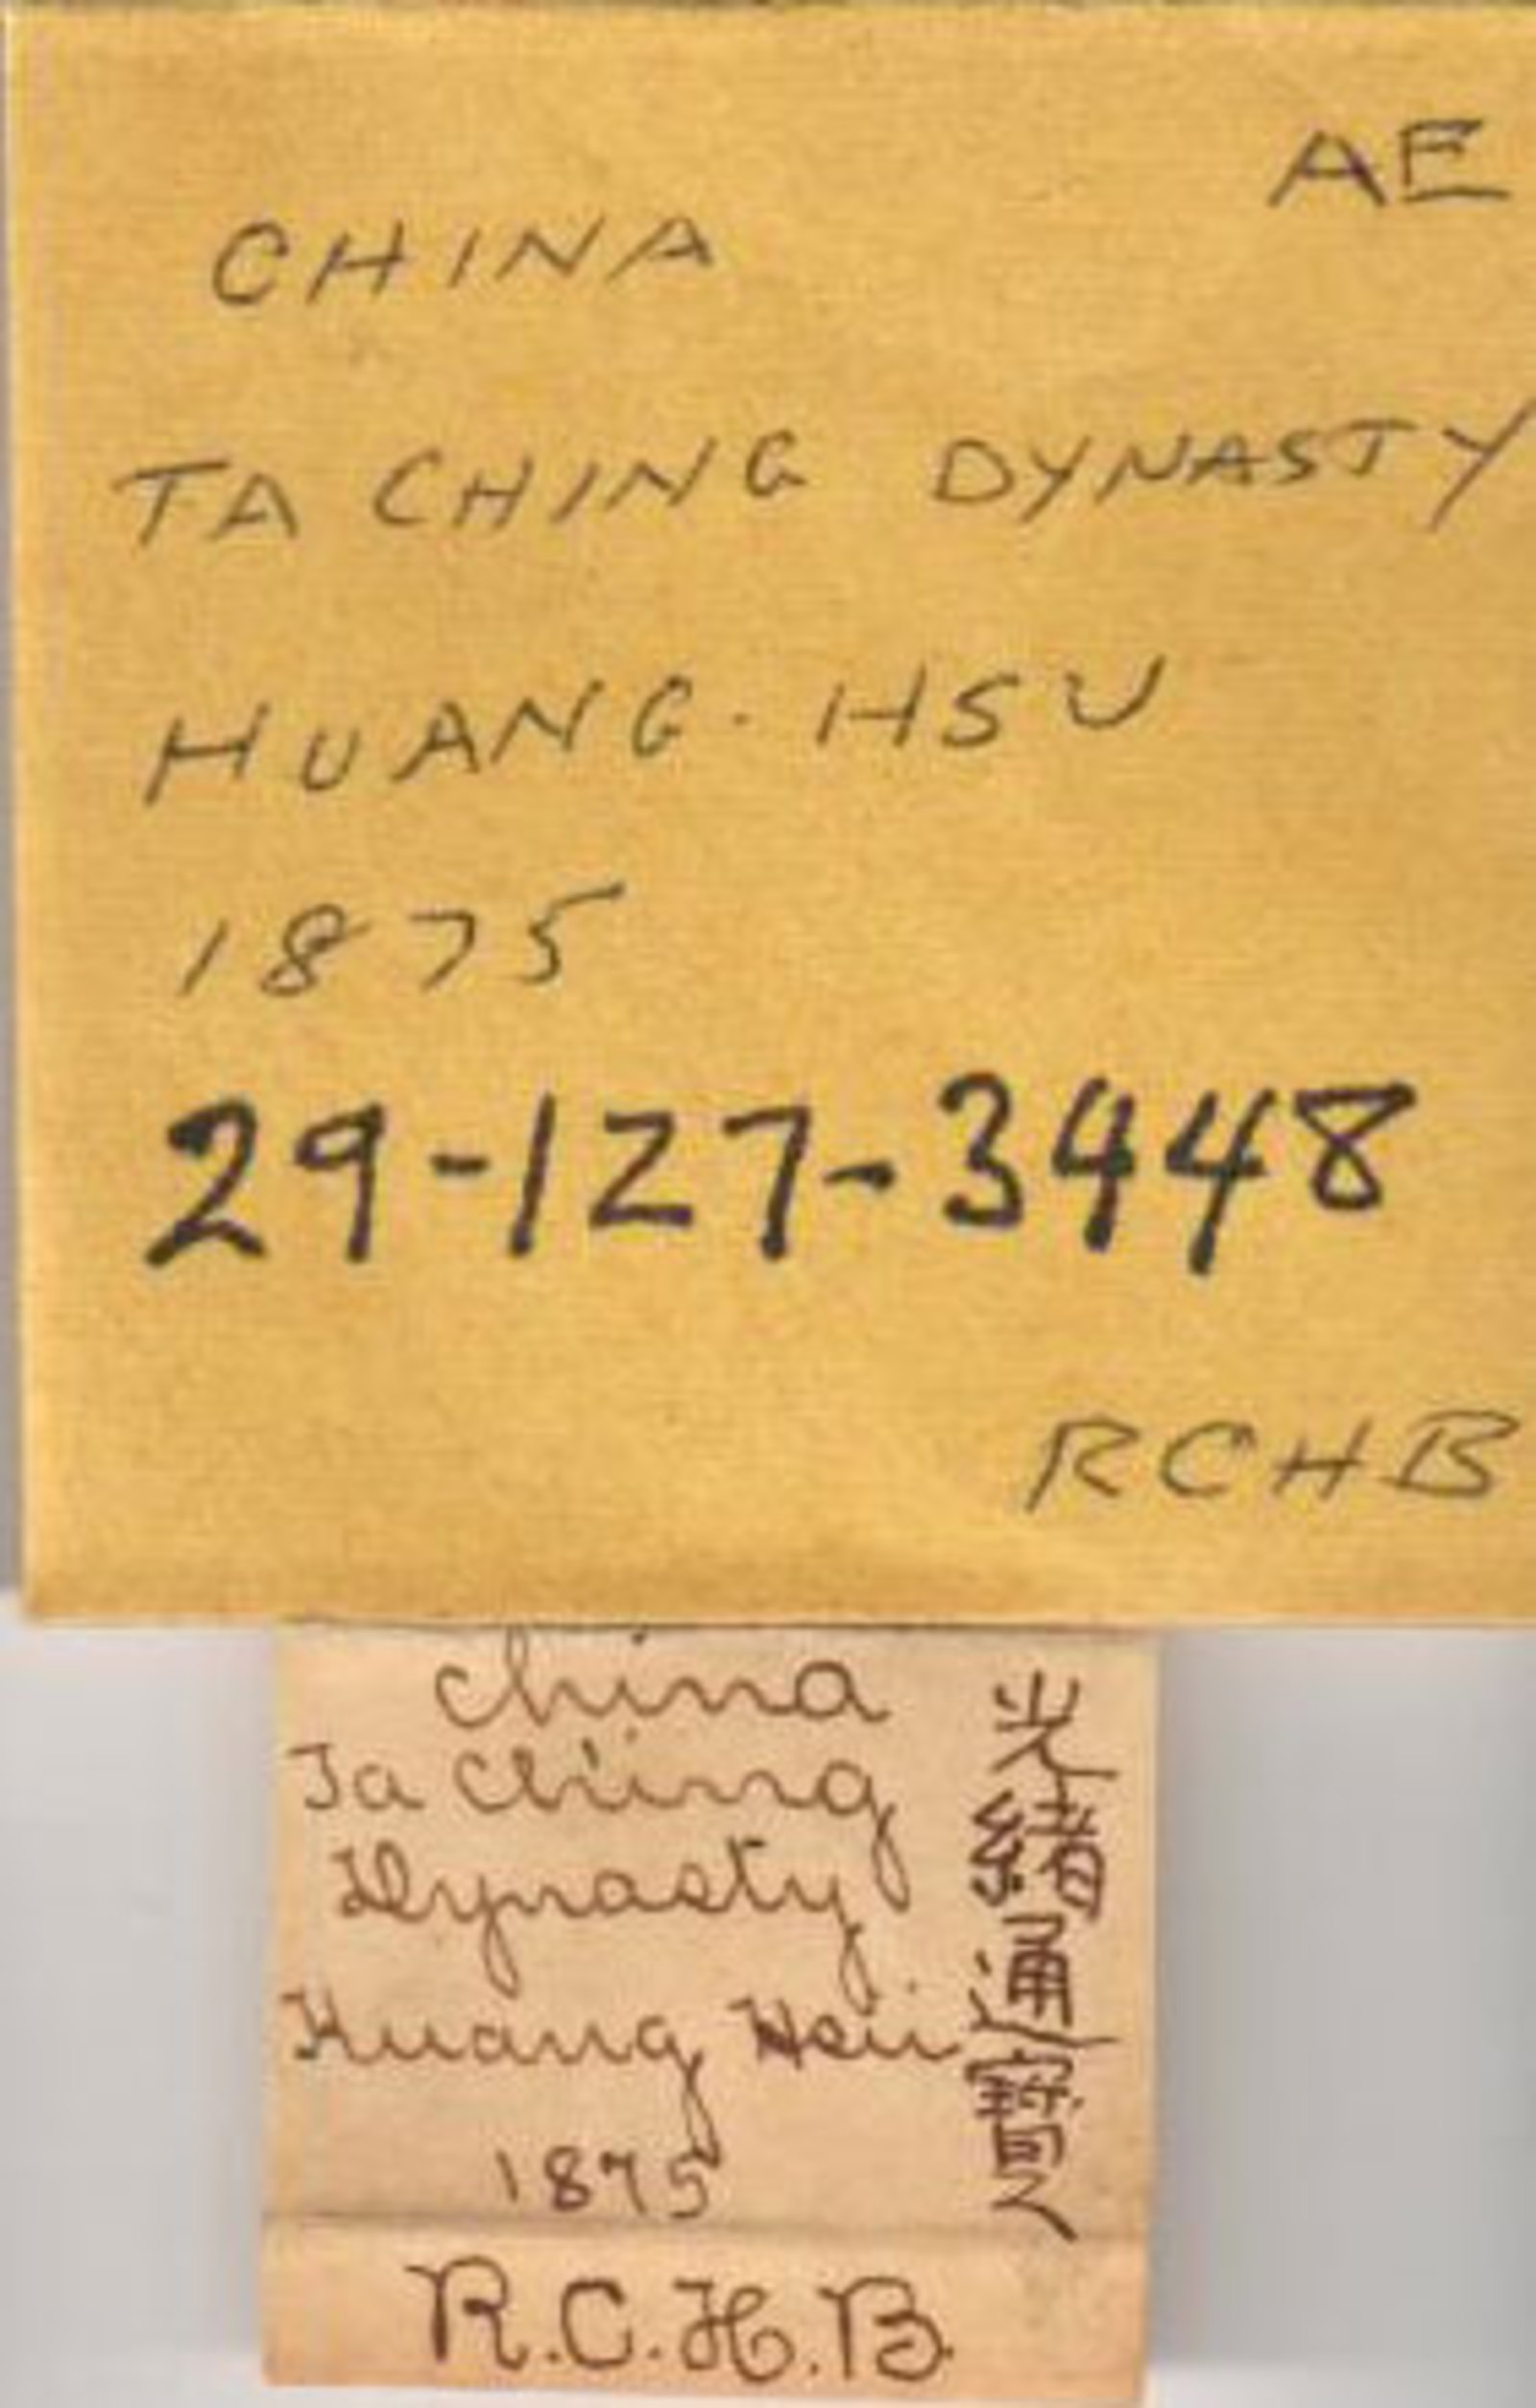 AE
CHINA
TA CHING DYNASTY
HUANG-HSU
1875
29-127-3448
RCHB
China
Ta Ching
Dynasty
Kuang Hsü
1875
光緒通寶
R.C.H.B.